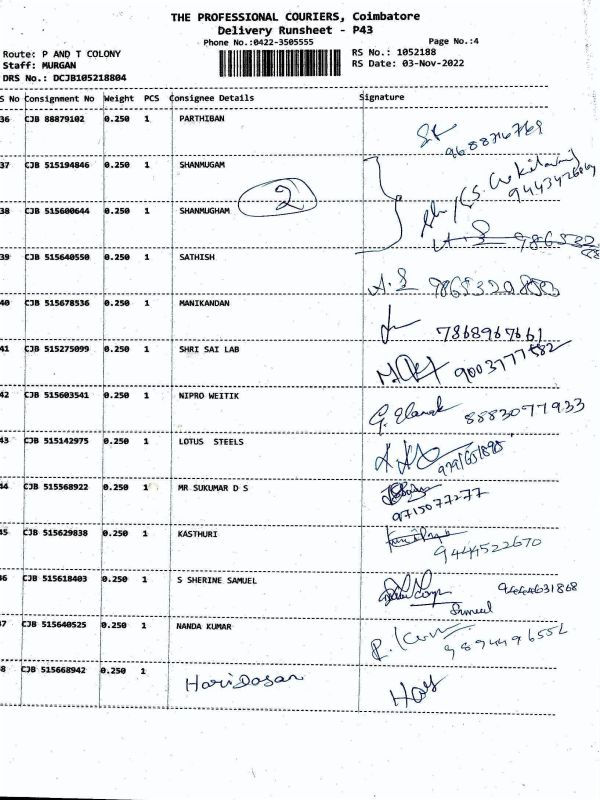 THE PROFESSIONAL COURIERS, Coimbatore
Delivery Runsheet - P43
Phone No.:0422-3505555 Page No.:4
Route: P AND T COLONY RS No.: 1052188
Staff: MURGAN RS Date: 03-Nov-2022
DRS No.: DCJB105218804
S No Consignment No Weight PCS Consignee Details Signature
36 CJB 88879102 0.250 1 PARTHIBAN
37 CJB 515194846 0.250 1 SHANMUGAM
2
38 CJB 515600644 0.250 1 SHANMUGHAM
39 CJB 515640550 0.250 1 SATHISH
40 CJB 515678536 0.250 1 MANIKANDAN
7868967661
41 CJB 515275099 0.250 1 SHRI SAI LAB
9003177582
42 CJB 515603541 0.250 1 NIPRO WEITIK
8883077933
43 CJB 515142975 0.250 1 LOTUS STEELS
44 CJB 515568922 0.250 1 MR SUKUMAR D S
9715077277
45 CJB 515629838 0.250 1 KASTHURI
9444522670
46 CJB 515618403 0.250 1 S SHERINE SAMUEL
9444631868
47 CJB 515640525 0.250 1 NANDA KUMAR
9894496552
48 CJB 515668942 0.250 1 HariDasan
Hari